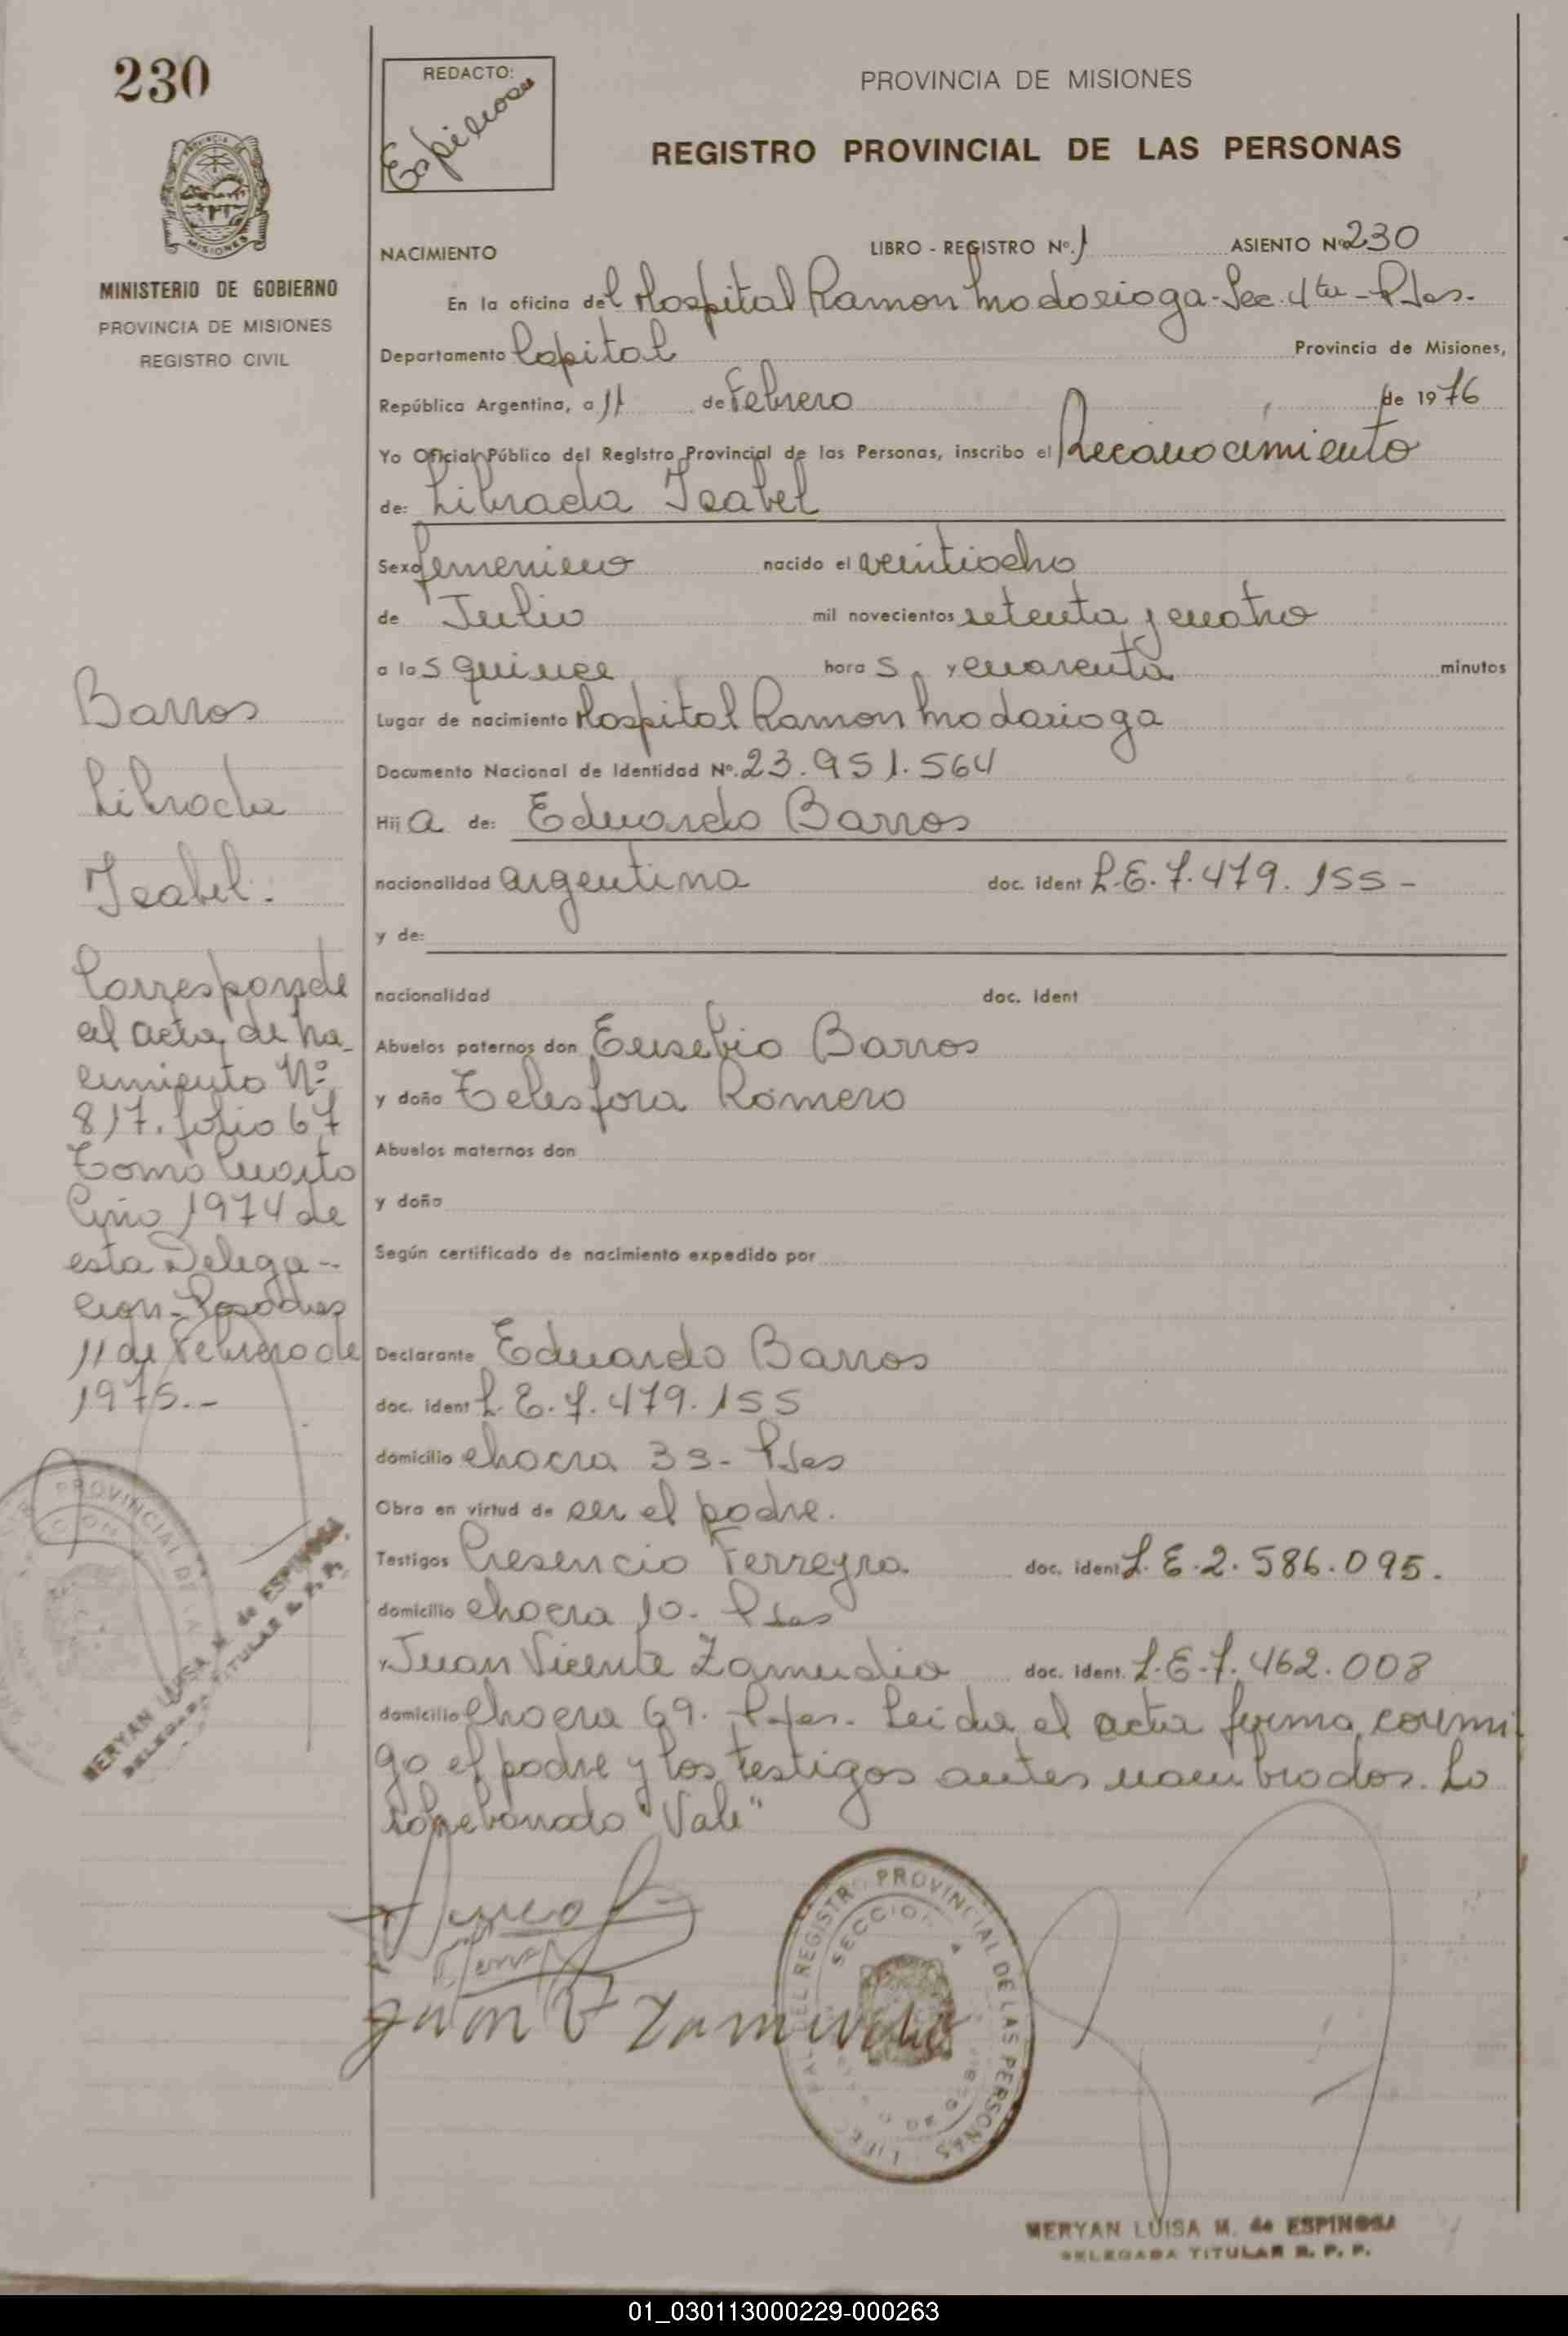 230
MINISTERIO DE GOBIERNO
PROVINCIA DE MISIONES
REGISTRO CIVIL
REDACTO:
Espinosa
PROVINCIA DE MISIONES
REGISTRO PROVINCIAL DE LAS PERSONAS
NACIMIENTO LIBRO - REGISTRO Nº. 1 ASIENTO Nº 230
En la oficina del Hospital Ramon Madariaga - Sec. 4ta - Pdas.
Departamento Capital Provincia de Misiones,
República Argentina, a 11 de Febrero de 1976
Yo Oficial Público del Registro Provincial de las Personas, inscribo el Reconocimiento
de: Librada Isabel
Sexo femenino nacido el veintiocho
de Julio mil novecientos setenta y cuatro
a las quince horas y cuarenta minutos
Lugar de nacimiento Hospital Ramon Madariaga
Documento Nacional de Identidad Nº. 23.951.564
Hija de: Eduardo Barros
nacionalidad argentina doc. ident L.E. 7.479.155 -
y de:
nacionalidad doc. ident
Abuelos paternos don Eusebio Barros
y doña Telesfora Romero
Abuelos maternos don
y doña
Según certificado de nacimiento expedido por
Declarante Eduardo Barros
doc. ident L.E. 7.479.155
domicilio chacra 33 - Pdas
Obra en virtud de ser el padre.
Testigos Cresencio Ferreyra doc. ident L.E. 2.586.095.
domicilio chacra 10. Pdas
y Juan Vicente Zamudio doc. ident. L.E. 7.462.008
domicilio chacra 69. Pdas. Leida el acta firma conmi-
go el padre y los testigos antes nombrados. Lo
sobreborrado "Vale"
Barros
Librada
Isabel.
Corresponde
al acta de na-
cimiento Nº
817. folio 67
Tomo Cuarto
Año 1974 de
esta Delega-
cion - Posadas
11 de Febrero de
1976.-
MERYAN LUISA M. de ESPINOSA
DELEGADA TITULAR R. P. P.
Juan V Zamudio
REGISTRO PROVINCIAL DE LAS PERSONAS
SECCION 4
MERYAN LUISA M. de ESPINOSA
DELEGADA TITULAR R. P. P.
01_030113000229-000263